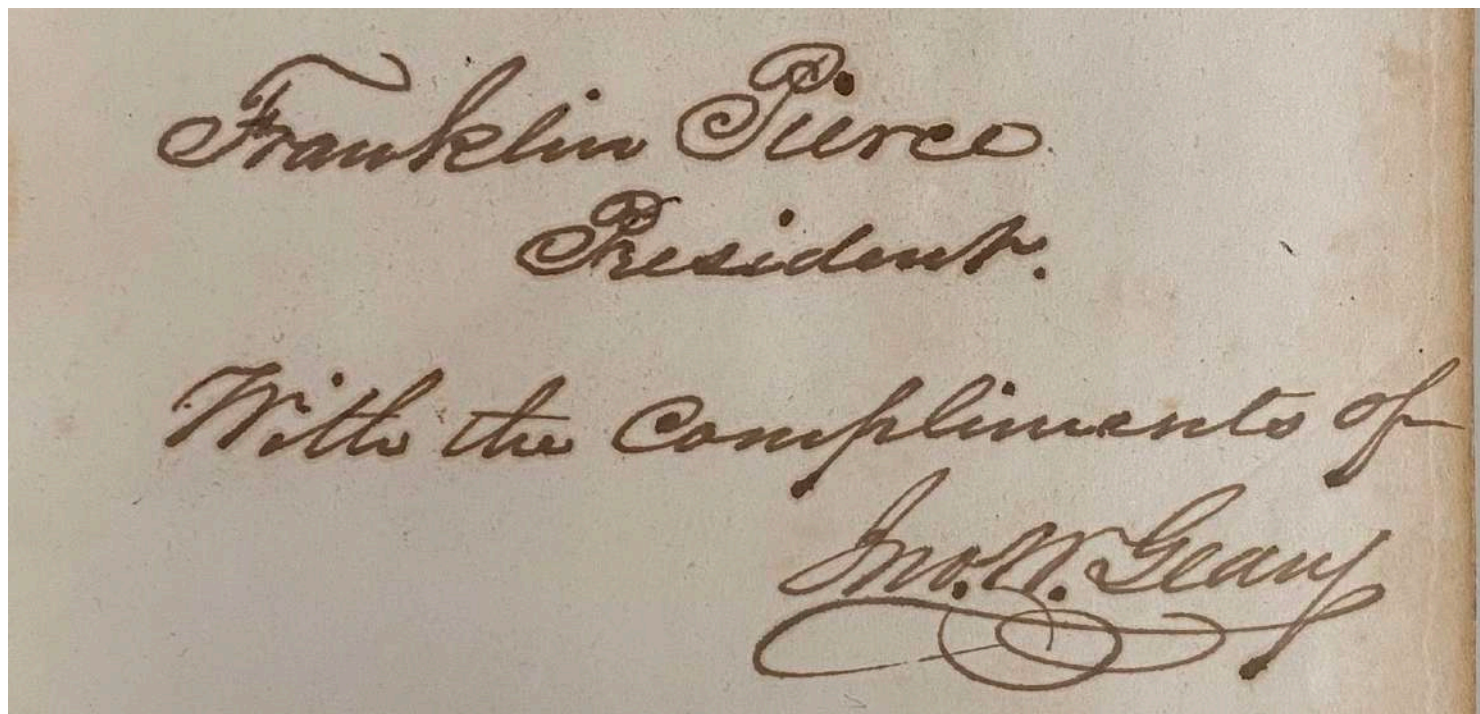 Franklin Pierce
President.
With the Compliments of
Jno. W. Geary